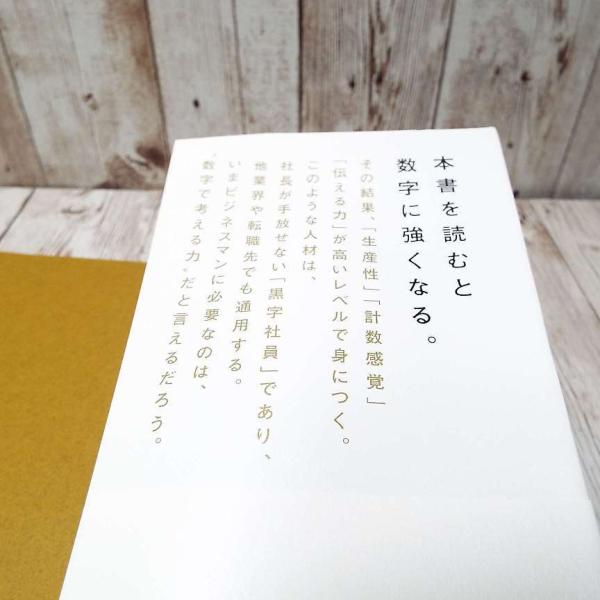 本書を読むと
数字に強くなる。
その結果、「生産性」「計数感覚」
「伝える力」が高いレベルで身につく。
このような人材は、
社長が手放せない「黒字社員」であり、
他業界や転職先でも通用する。
いまビジネスマンに必要なのは、
“数字で考える力”だと言えるだろう。